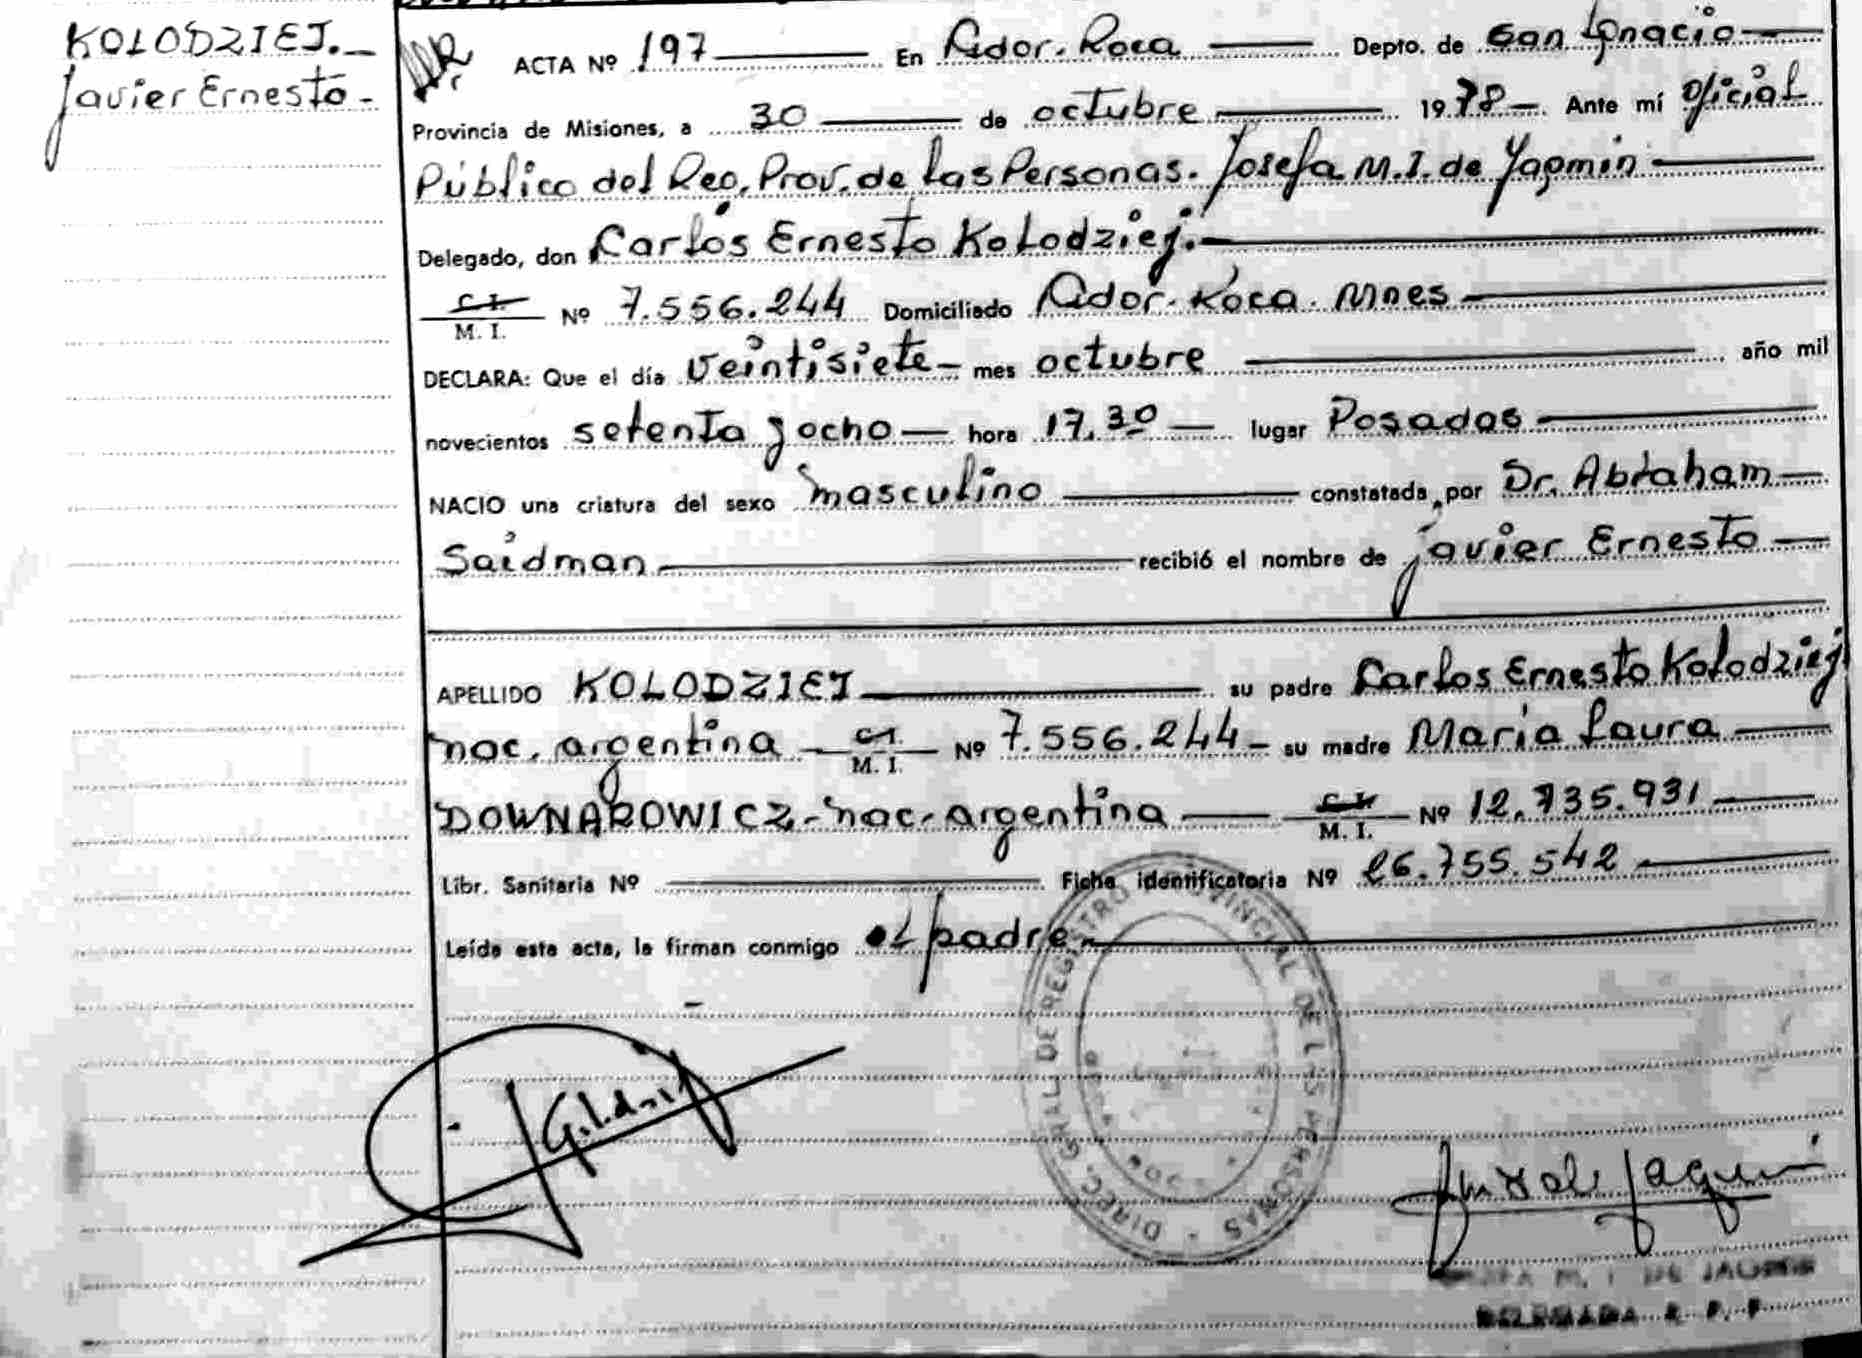 KOLODZIEJ.-
Javier Ernesto-
ACTA Nº 197 En Gdor. Roca Depto. de San Ignacio
Provincia de Misiones, a 30 de octubre 1978 Ante mí oficial
Público del Reg. Prov. de las Personas. Josefa M.I. de Jaqmin
Delegado, don Carlos Ernesto Kolodziej.-
C.I. M. I. Nº 7.556.244 Domiciliado Gdor. Roca. Mnes
DECLARA: Que el día veintisiete mes octubre año mil
novecientos setenta y ocho hora 17,30 lugar Posadas
NACIO una criatura del sexo masculino constatada por Dr. Abraham
Saidman recibió el nombre de javier Ernesto
APELLIDO KOLODZIEJ su padre Carlos Ernesto Kolodziej
nac. argentina C.I. M. I. Nº 7.556.244 su madre María Laura
DOWNAROWICZ-nac-argentina C.I. M. I. Nº 12.735.931
Libr. Sanitaria Nº Ficha identificatoria Nº 26.755.542
Leída este acta, la firman conmigo el padre
DIRECC. GRAL. DE REGISTRO PROVINCIAL DE LAS PERSONAS
M. I. DE
DELEGADA R. P. P.